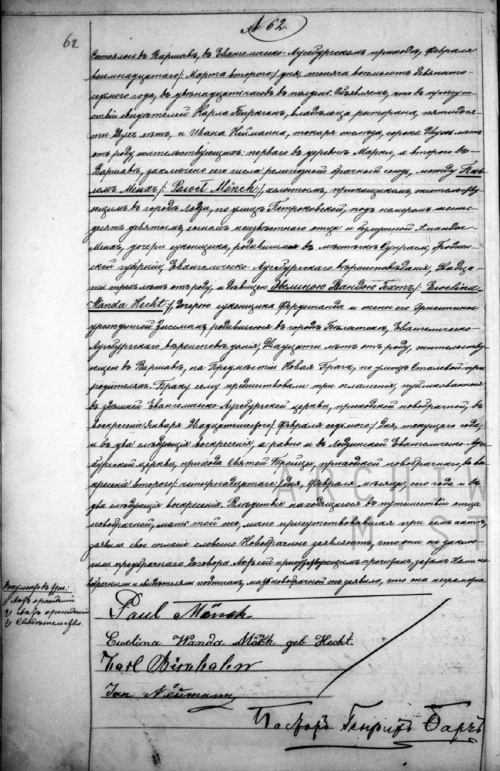 № 62
62
Состоялось въ Варшавѣ, въ Евангелическо-Аугсбургскомъ приходѣ, Февраля
восемнадцатаго / Марта второго / дня, тысяча восемьсотъ девяносто
седьмого года, въ двѣнадцать часовъ въ полдень. Объявляемъ, что въ присут-
ствіи свидѣтелей Карла Бирнбаума, владѣльца ресторана, пятидеся-
ти двухъ лѣтъ, и Ивана Неймана, токаря, сорока двухъ лѣтъ
отъ роду, жительствующихъ: перваго въ деревнѣ Марки, а второго въ
Варшавѣ, заключенъ сего числа религіозный брачный союзъ, между Пав-
ломъ Менхъ / Pawel Mönch /, холостымъ, приказчикомъ, жительству-
ющимъ въ городѣ Лодзи, по улицѣ Петроковской, подъ номеромъ шесть-
десятъ девятымъ, сыномъ неизвѣстнаго отца и
Менхъ, дочери суконщика, родившимся въ мѣстечкѣ
губерніи, Евангелическо-Аугсбургскаго вѣроисповѣданія, двадца-
ти трехъ лѣтъ отъ роду, и дѣвицею Эвелиною Вандою Гехтъ / Ewelina
Wanda Hecht /, дочерью суконщика Фердинанда и жены его Эрнестины
урожденной родившеюся въ городѣ Евангелическо-
Аугсбургскаго вѣроисповѣданія, двадцати лѣтъ отъ роду, жительству-
ющею въ Варшавѣ, на Предмѣстіи Новая Прага, по улицѣ Стальной при
родителяхъ. Браку сему предшествовали три оглашенія, публикованныя
въ здѣшней Евангелическо-Аугсбургской церкви, приходской новобрачной, въ
воскресенье Января двадцать / Февраля седьмого / дня, текущаго года,
и въ два слѣдующія воскресенія, а равно и въ Лодзинской Евангелическо-Ауг-
сбургской церкви, прихода Святой Троицы, приходской новобрачнаго, въ во-
скресенье второго / четырнадцатаго / дня, Февраля мѣсяца, сего года и въ
два слѣдующія воскресенія. находящегося въ путешествіи отца
новобрачной, мать той же, лично присутствовавшая при семъ актѣ,
заявила свое согласіе словесно. Новобрачные заявляютъ, что они не заклю-
чили предбрачнаго договора. Актъ сей присутствующимъ прочитанъ, затѣмъ Нами но-
вобрачными и свидѣтелями подписанъ, мать новобрачной же заявила, что она неграмотна
Paul Mönch
Ewelina Wanda Mönch geb Hecht
Karl Birnbaum
Jan Neumann
Пасторъ Генрихъ Барчъ